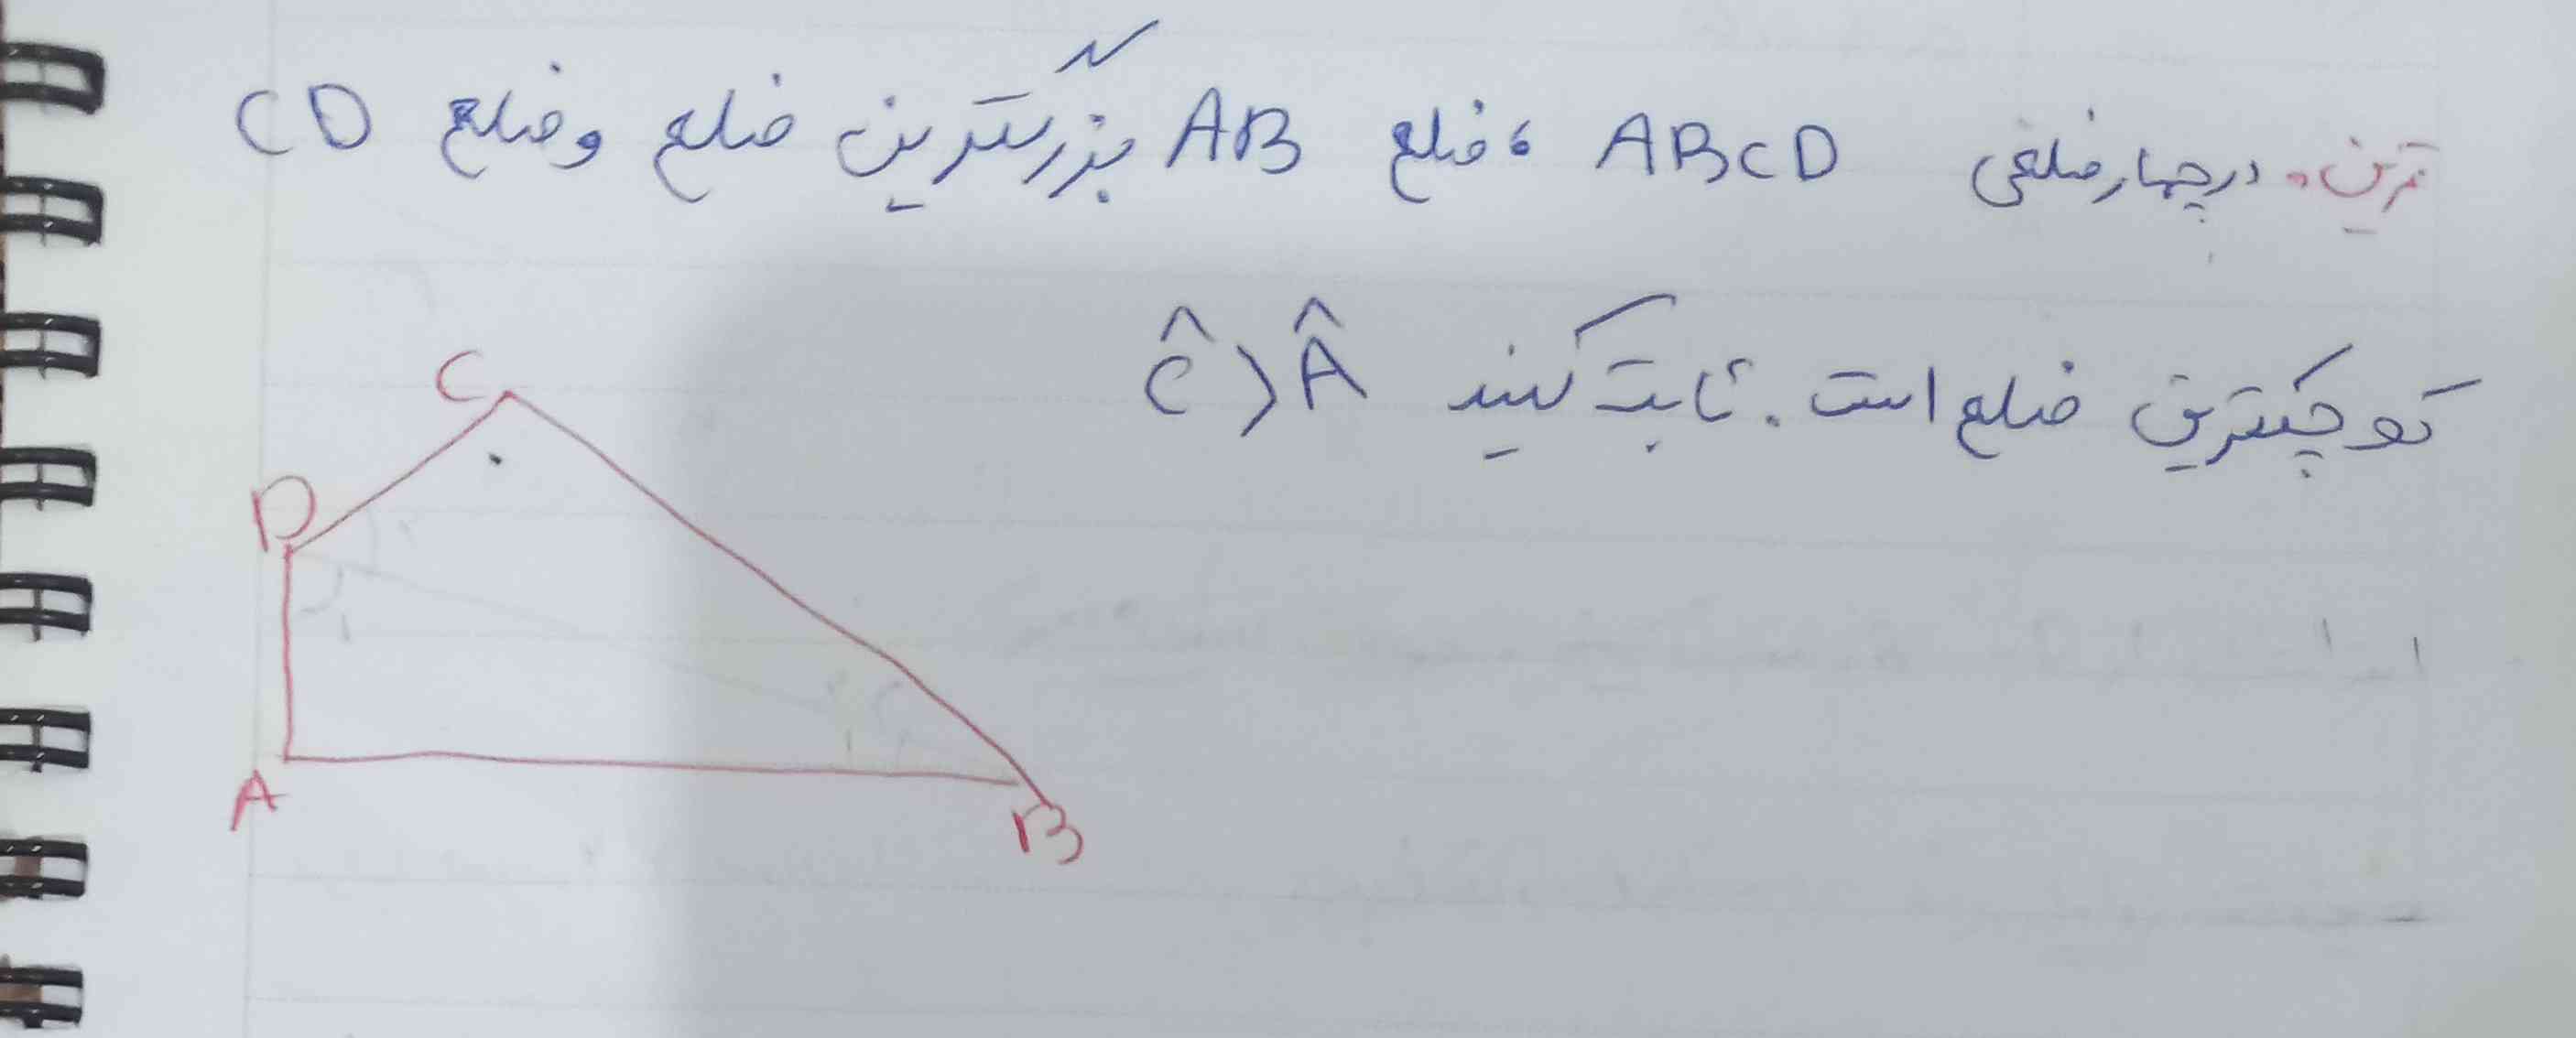 تمرین. در چهارضلعی ABCD ، ضلع AB بزرگترین ضلع و ضلع CD
کوچکترین ضلع است. ثابت کنید Ĉ > Â
C
D
A
B